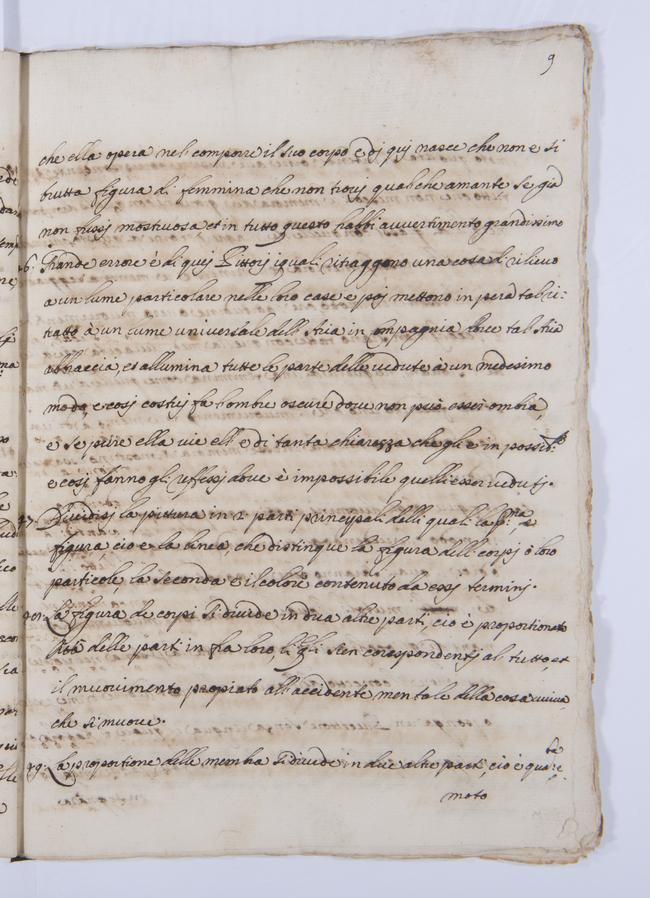 9
che ella opera nel comporre il suo corpo e di qui nasce che non è si
brutta figura di femmina che non trovi qualche amante se già
non fussi mostruosa et in tutto questo habbi avvertimento grandissimo
46. Grande errore è di quij Pittori i quali ritraggono una cosa di rilievo
a un lume particolare nelle loro case e poi mettono in opera tal ri:
tratto à un lume universale dell Aria in Compagnia dove tal Aria
abbraccia, et allumina tutte le parte delle vedute à un medesimo
modo, e cosi costui fa l'ombre oscure dove non può esser ombra,
e se pure ella vi è ell è di tanta chiarezza che gli è in possid.
e cosi fanno gli reflessi dove è impossibile quelli esser veduti.
47. Dividesi la pittura in 2 parti principali delli quali la p.ma è
figura cio è la linea che distingue la figura delli corpi ò loro
particole, la seconda è il colore contenuto da essi termini.
La figura de corpi si divide in dua altre parti, cio è proportionalità
delle parti in fra loro, li q.li sien corespondenti al tutto, et
il muovimento propiato all accidente mentale della cosa viviva
che si muove.
49. La proportione delle membra si divide in due altre parti, cio è qualità e
moto